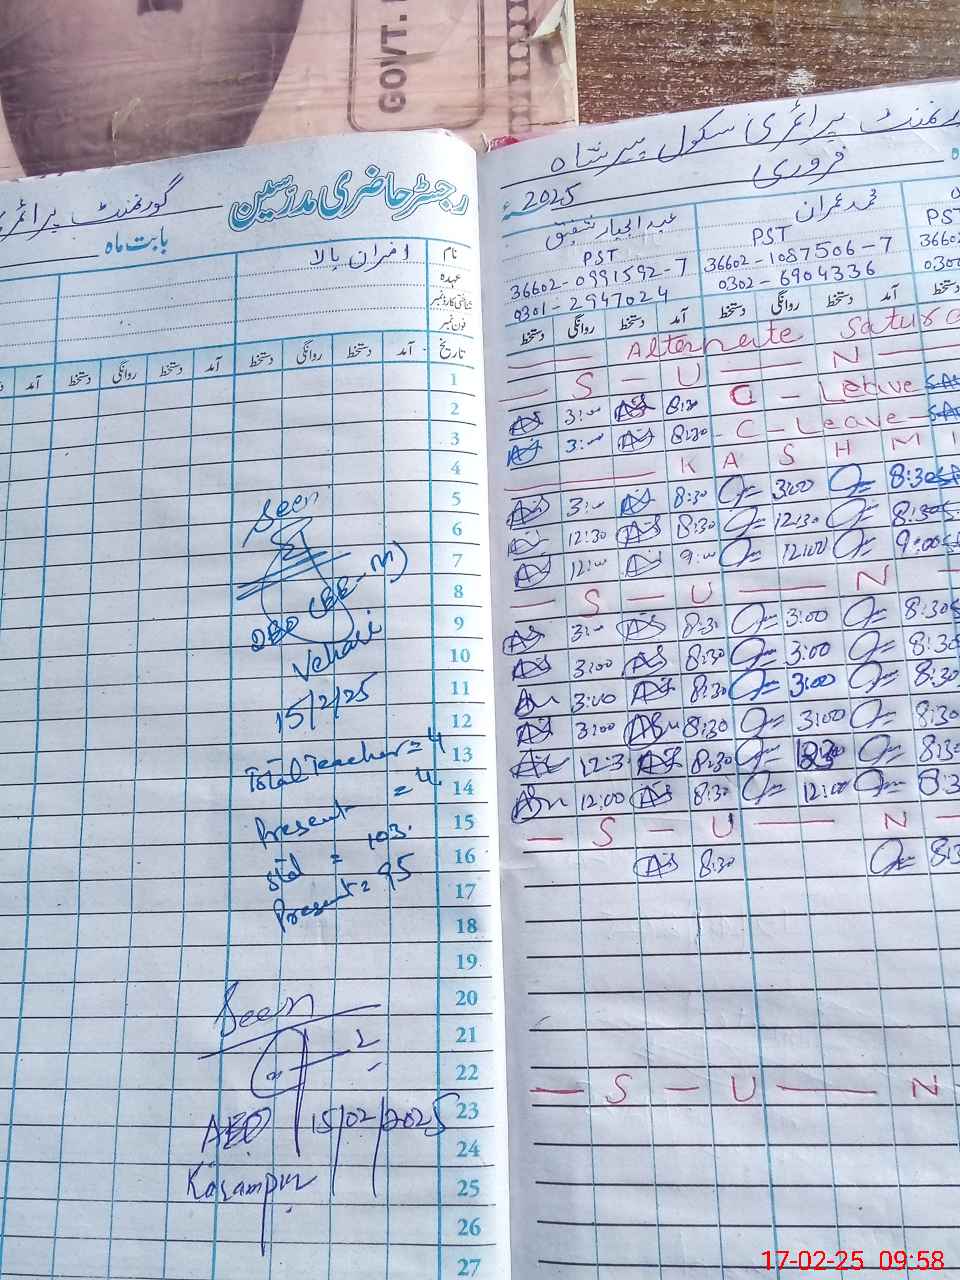 GOVT.
رجسٹر حاضری مدرسین
گورنمنٹ پرائمری
بابت ماہ
افسران بالا
نام
عہدہ
شناختی کارڈ نمبر
فون نمبر
تاریخ
آمد دستخط روانگی دستخط آمد دستخط روانگی دستخط آمد
1
2
3
4
5
6
7
8
9
10
11
12
13
14
15
16
17
18
19
20
21
22
23
24
25
26
27
Seen
Vehari
15/2/25
Total Teacher = 4
Present = 4
Total = 103
Present = 95
Seen
AEO 15/02/2025
Karampur
گورنمنٹ پرائمری سکول پیر شاہ
فروری
2025ء
عبدالجبار شفیق
محمد عمران
PST
PST
PST
36602-0991592-7
36602-1087506-7
36602
0301-2947024
0302-6904336
آمد دستخط روانگی دستخط آمد دستخط روانگی دستخط
Alternate Satur
S - U N
3:00 8:30 C - Leave
3:00 8:30 - C - Leave -
K A S H M I
3:00 8:30 3:00 8:30
12:30 8:30 12:30 8:30
12:00 9:00 12:00 9:00
S - U N
3:00 8:30 3:00 8:30
3:00 8:30 3:00 8:30
3:00 8:30 3:00 8:30
3:00 8:30 3:00 8:30
12:3 8:30 8:30
12:00 8:30 12:00 8:3
S - U N
8:30 8:3
S - U N
17-02-25 09:58